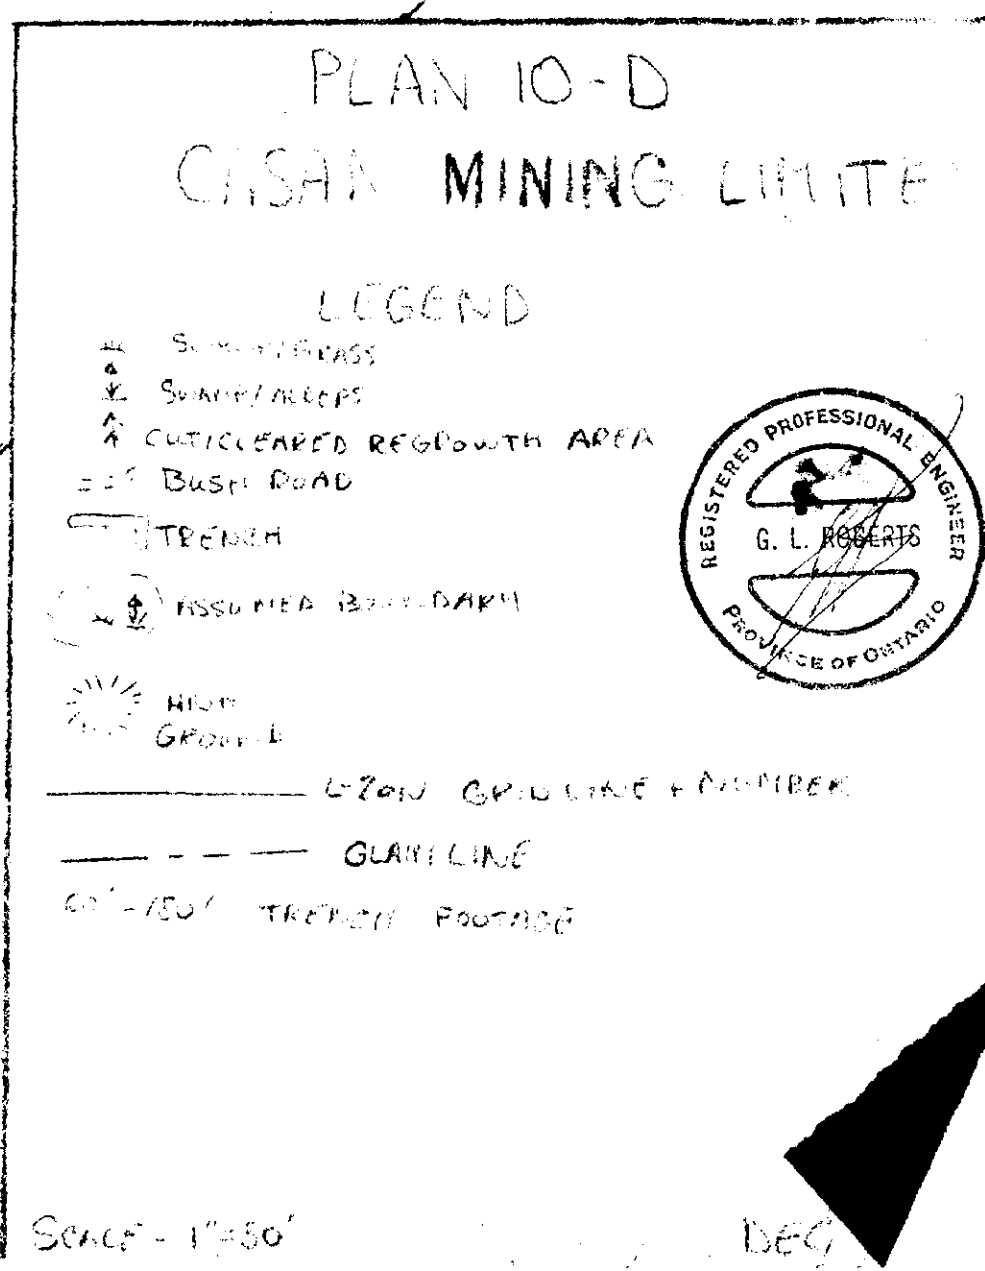 PLAN 10-D
CASAN MINING LIMITE
LEGEND
SWAMP/GRASS
SWAMP/ALDERS
CUT/CLEARED REGROWTH AREA
BUSH ROAD
TRENCH
ASSUMED BOUNDARY
HIGH
GROUND
L-20N GRID LINE + NUMBER
CLAIM LINE
60'-150' TRENCH FOOTAGE
REGISTERED PROFESSIONAL ENGINEER
G. L. ROBERTS
PROVINCE OF ONTARIO
SCALE - 1"=50'
DEC